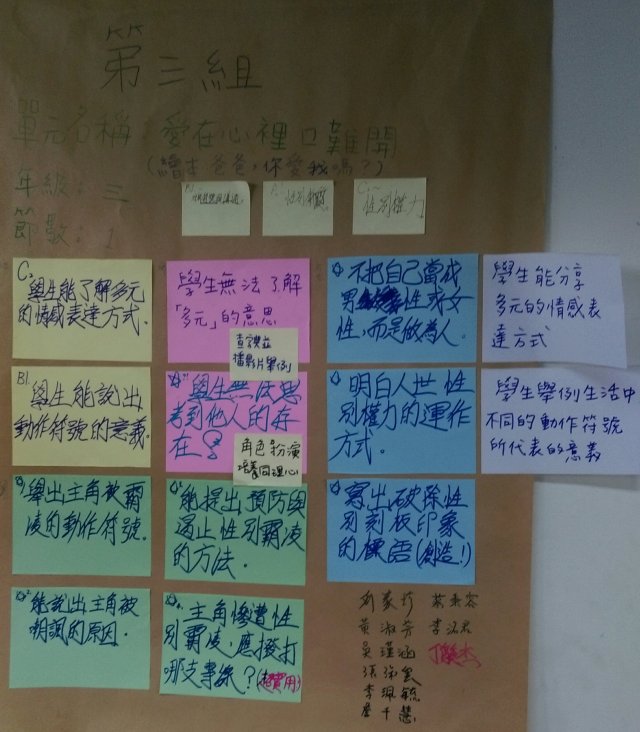 第三組
單元名稱：愛在心裡口難開
(繪本 爸爸，你愛我嗎？)
年級：三
節數：1
性別權力
C2
學生能了解多元
的情感表達方式.
學生無法了解
「多元」的意思
查證並
播影片舉例
不把自己當成
男性或女
性，而是做為人。
學生能分享
多元的情感表
達方式
B1
學生能說出
動作符號的意義。
學生無法思
考到他人的存
在？
角色扮演
培養同理心
明白人世性
別權力的運作
方式。
學生舉例生活中
不同的動作符號
所代表的意義
舉出主角被霸
凌的動作符號。
能提出預防與
遏止性別霸凌
的方法。
寫出破除性
別刻板印象
的標語(創造!)
能說出主角被
嘲諷的原因.
主角慘遭性
別霸凌，應撥打
哪支專線？(超實用)
黃淑芳
吳瑾涵
李珮毓